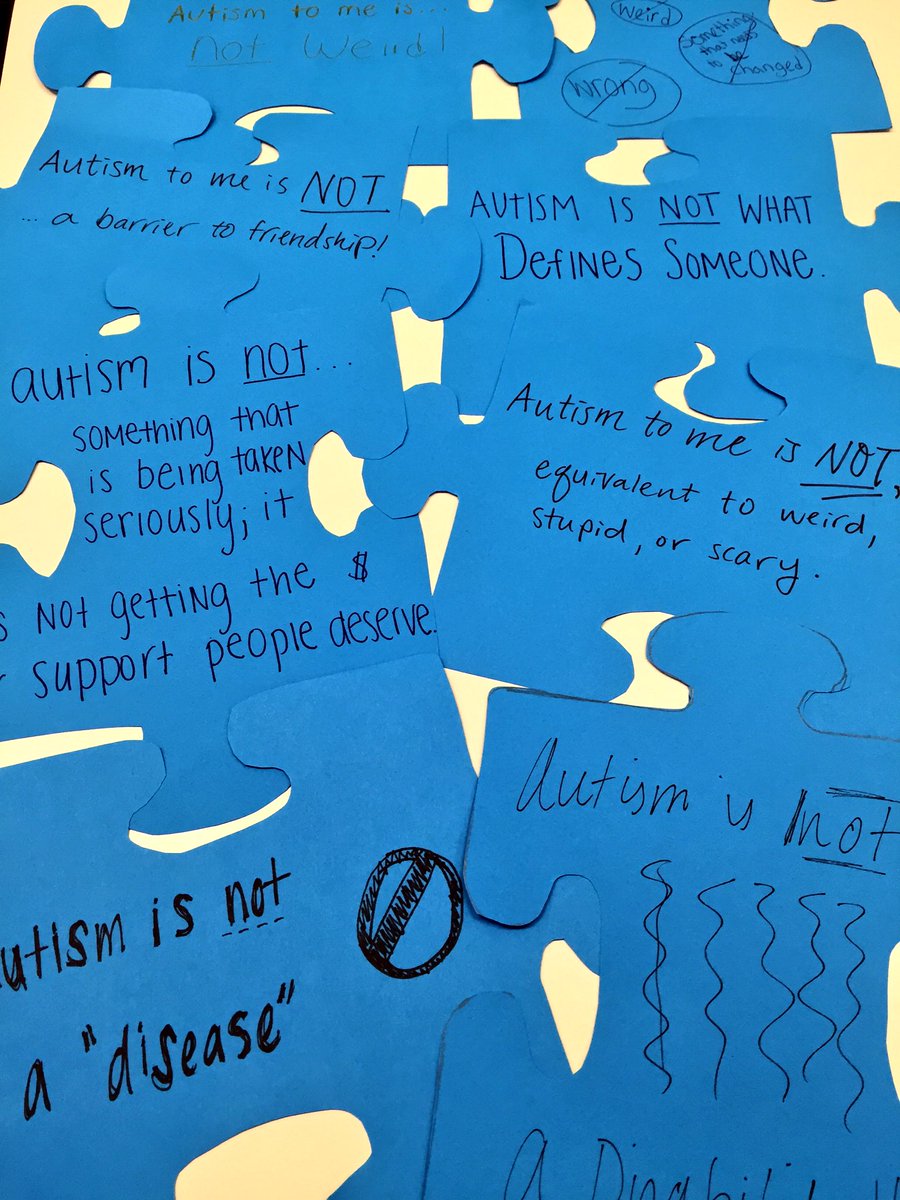 Autism to me is...
not Weird!
weird
something
that needs
to be
changed
wrong
Autism to me is NOT
... a barrier to friendship!
AUTISM IS NOT WHAT
DEFINES SOMEONE.
autism is not...
something that
is being taken
seriously; it
not getting the $
support people deserve.
Autism to me is NOT,
equivalent to weird,
stupid, or scary.
autism is not
a "disease"
Autism is not
a